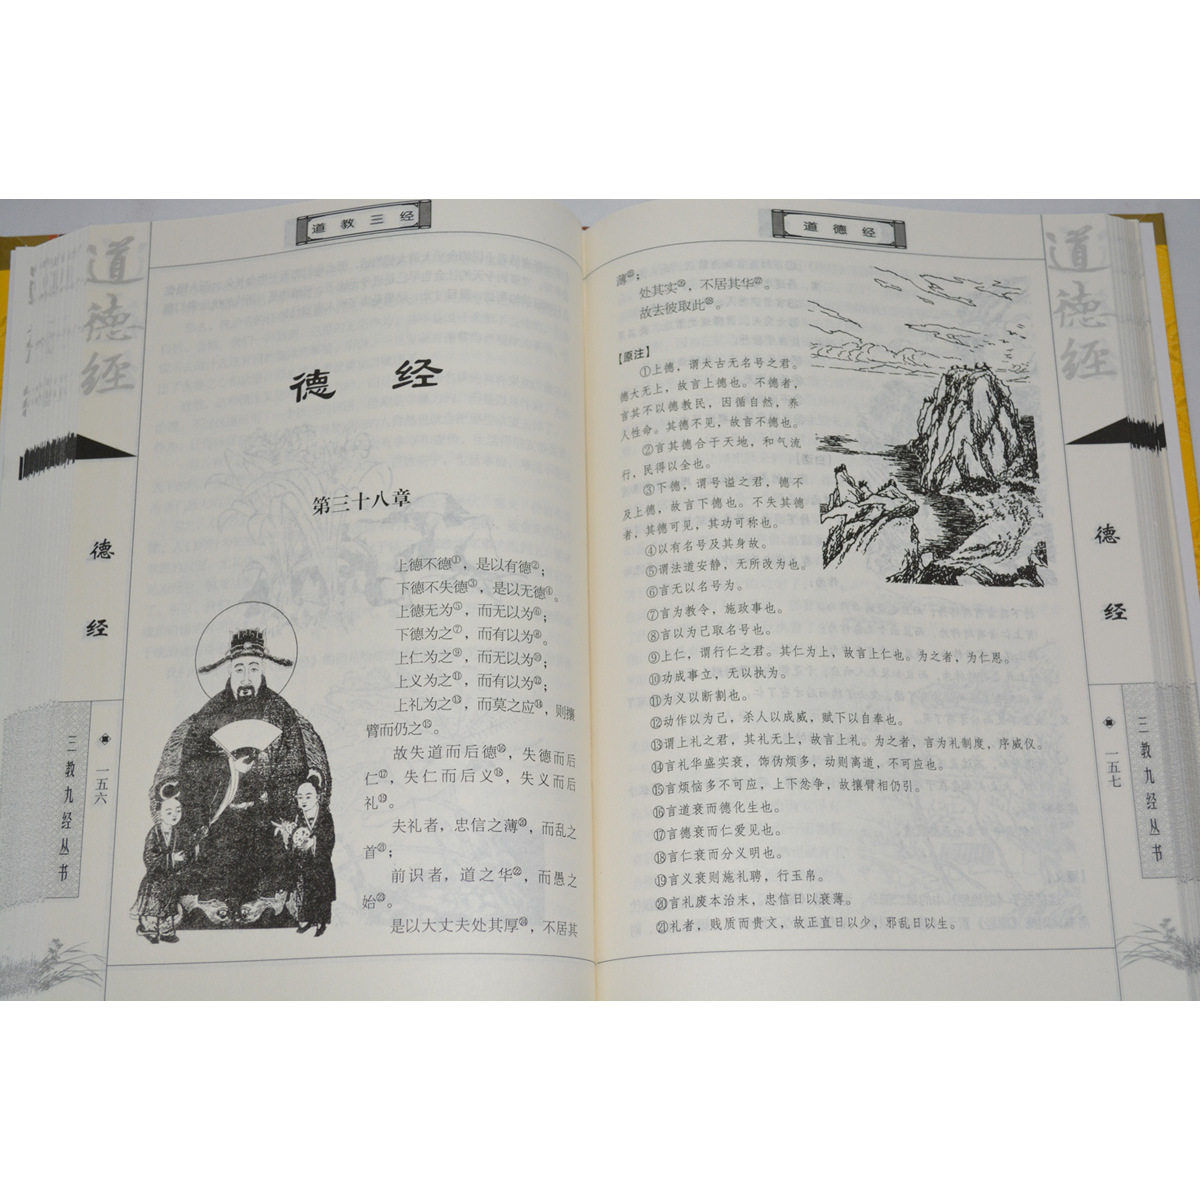 道教三经
道德经
德经
一五六
三教九经丛书
德经
第三十八章
上德不德①，是以有德②；
下德不失德③，是以无德④。
上德无为⑤，而无以为⑥；
下德为之⑦，而有以为⑧。
上仁为之⑨，而无以为⑩；
上义为之⑪，而有以为⑫；
上礼为之⑬，而莫之应⑭，则攘
臂而仍之⑮。
故失道而后德⑯，失德而后
仁⑰，失仁而后义⑱，失义而后
礼⑲。
夫礼者，忠信之薄⑳，而乱之
首㉑；
前识者，道之华㉒，而愚之
始㉓。
是以大丈夫处其厚㉔，不居其
道德经
薄㉕；
处其实㉖，不居其华㉗。
故去彼取此㉘。
【原注】
①上德，谓太古无名号之君。
德大无上，故言上德也。不德者，
言其不以德教民，因循自然，养
人性命。其德不见，故言不德也。
②言其德合于天地，和气流
行，民得以全也。
③下德，谓号谥之君，德不
及上德，故言下德也。不失其德
者，其德可见，其功可称也。
④以有名号及其身故。
⑤谓法道安静，无所改为也。
⑥言无以名号为。
⑦言为教令，施政事也。
⑧言以为己取名号也。
⑨上仁，谓行仁之君。其仁为上，故言上仁也。为之者，为仁恩。
⑩功成事立，无以执为。
⑪为义以断割也。
⑫动作以为己，杀人以成威，赋下以自奉也。
⑬谓上礼之君，其礼无上，故言上礼。为之者，言为礼制度，序威仪。
⑭言礼华盛实衰，饰伪烦多，动则离道，不可应也。
⑮言烦恼多不可应，上下忿争，故攘臂相仍引。
⑯言道衰而德化生也。
⑰言德衰而仁爱见也。
⑱言仁衰而分义明也。
⑲言义衰则施礼聘，行玉帛。
⑳言礼废本治末，忠信日以衰薄。
㉑礼者，贱质而贵文，故正直日以少，邪乱日以生。
道德经
德经
一五七
三教九经丛书